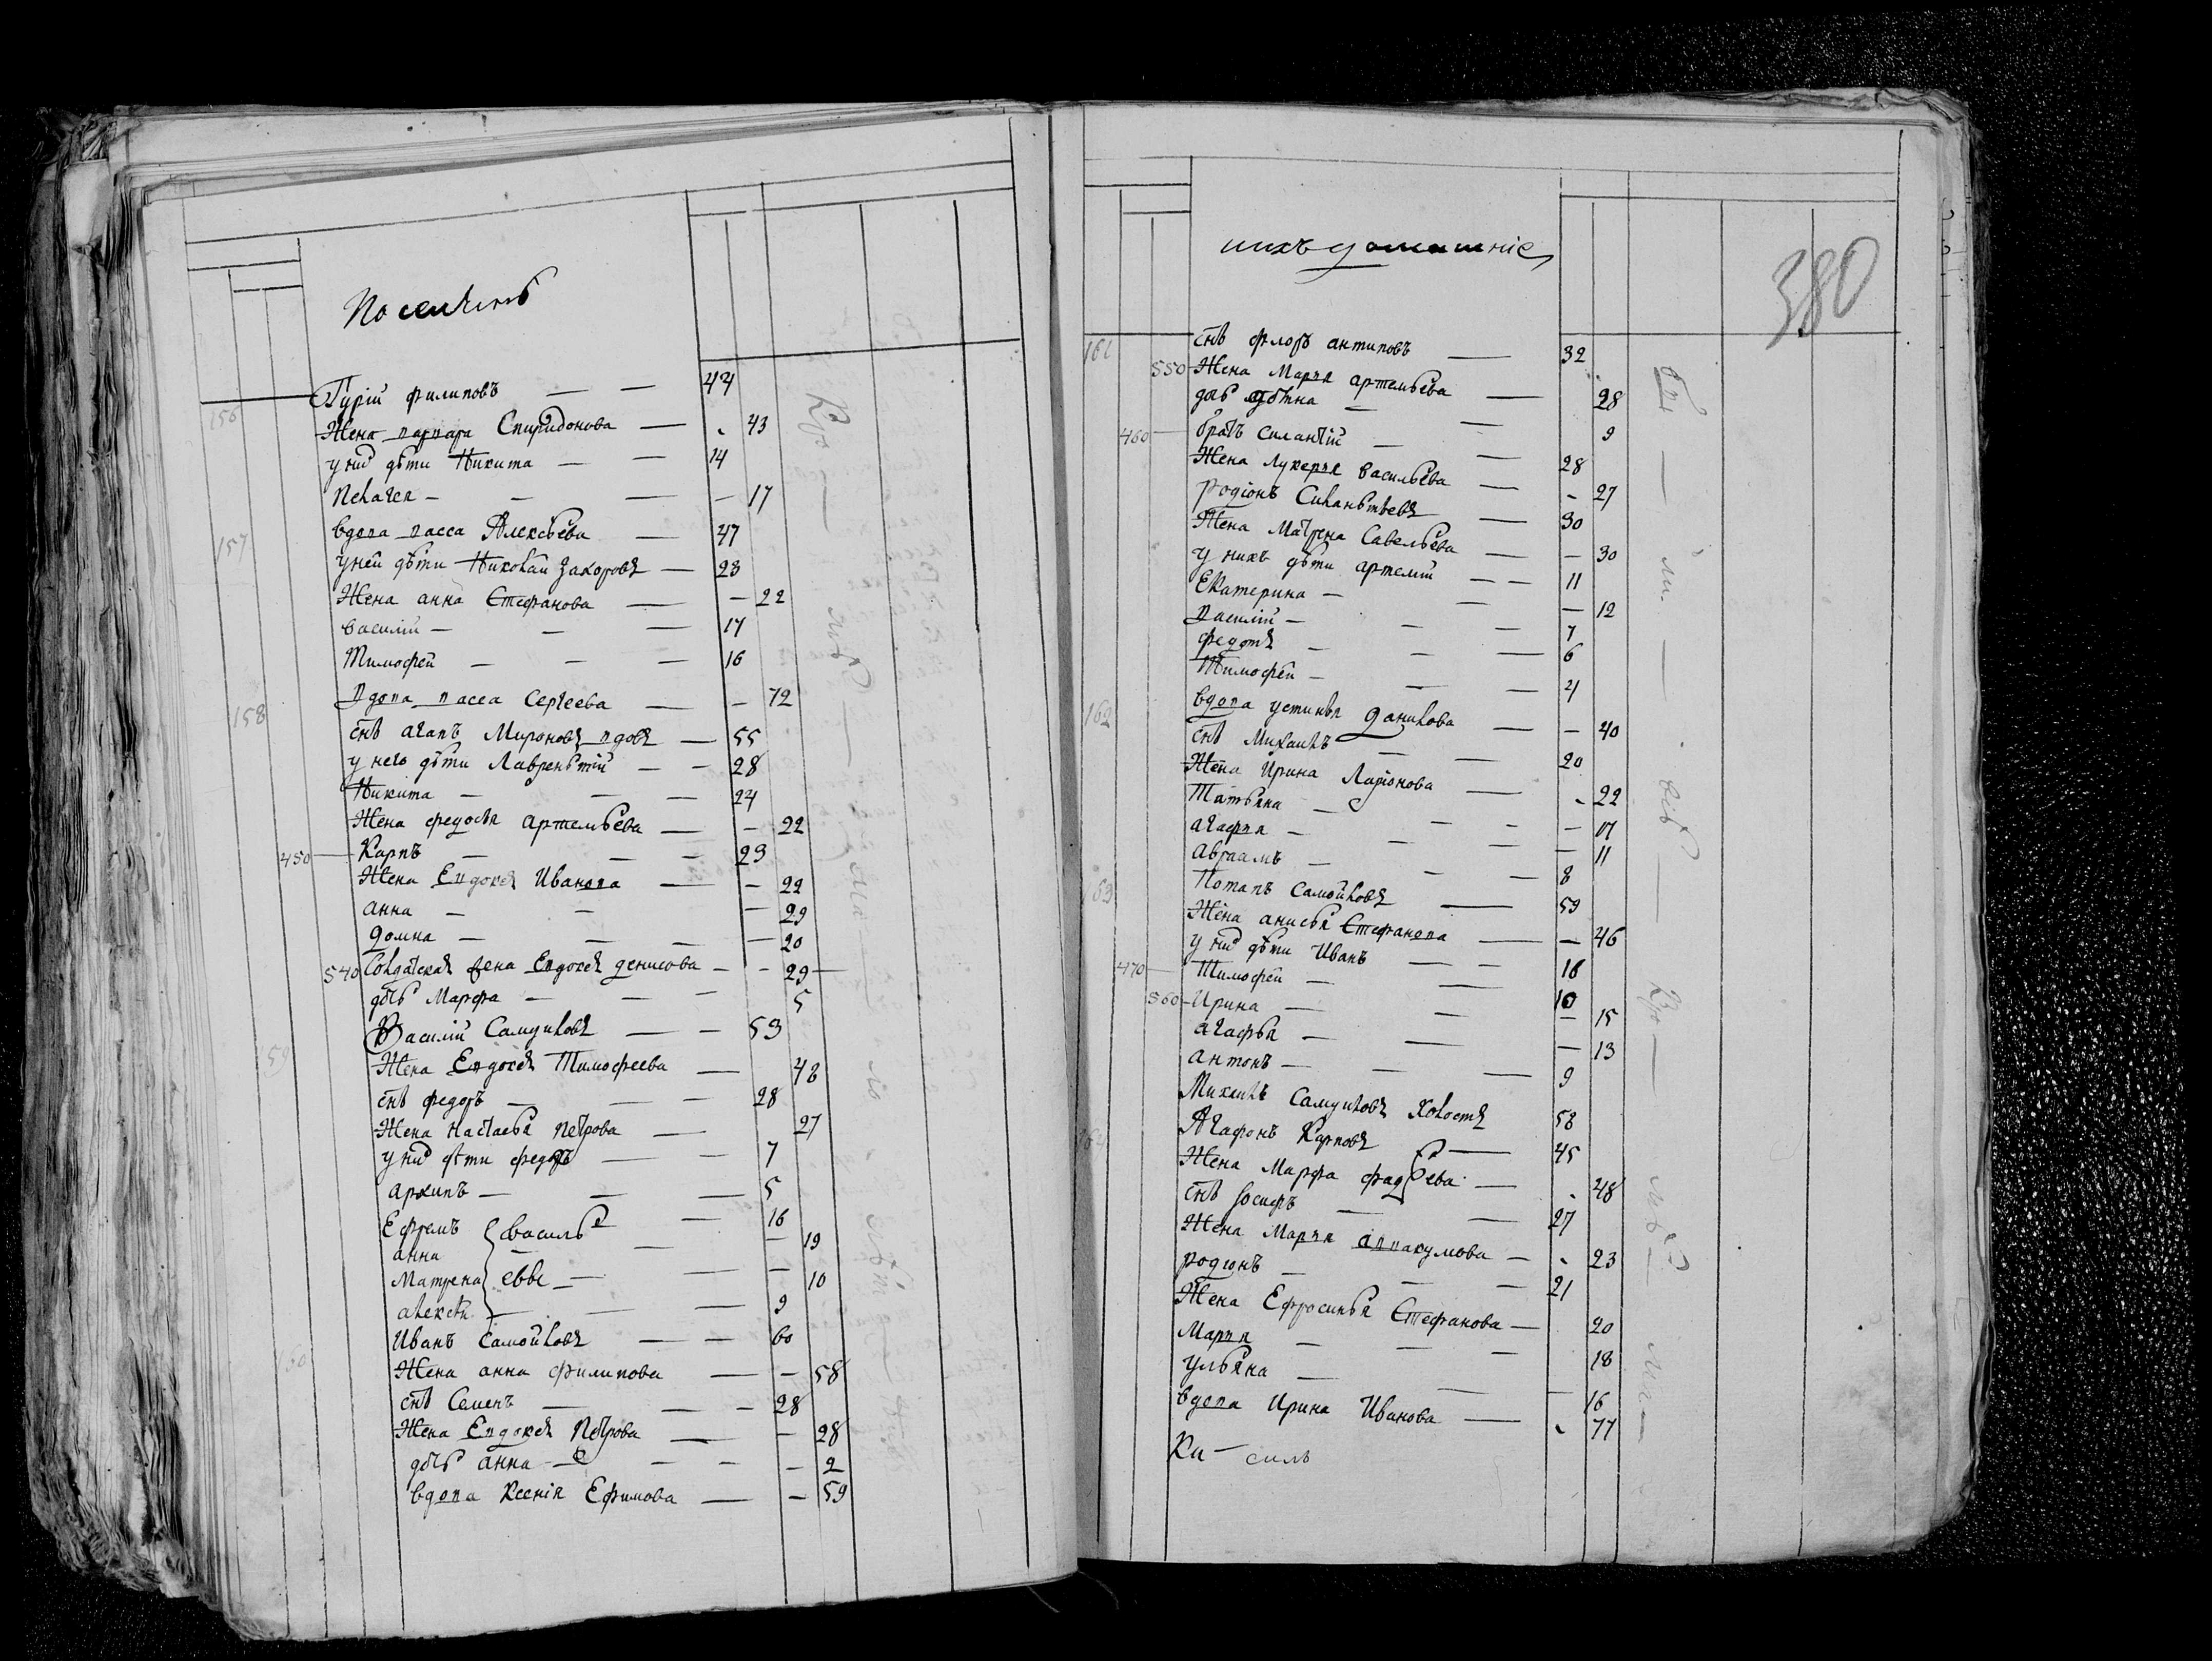 Поселянѣ
156 Гурій Филиповъ — — 44
Жена варвара Спиридонова — - 43
у них дѣти Никита — — 14
Пелагея — — — — 17
157 Вдова васса Алексѣева — 47
у ней дѣти Николай Захоровъ — 23
Жена анна Стефанова — — 22
василий — — — 17
Тимофей — — — 16
158 вдова васса Сергеева — — 72
снъ агапъ Мироновъ вдовъ — 55
у него дѣти Лаврентий — — 28
Никита — — — 24
Жена федосья артемьева — — 22
450 — Карпъ — — — 23
Жена Евдокея Иванова — — 22
анна — — — 29
домна — — — — 20
540 Солдатская жена Евдокея денисова — - 29 —
дочь Марфа — — — 5
59 Василий Самуиловъ — — 53
Жена Евдокея Тимофеева — 48
снъ федоръ — — — 28
Жена настасья Петрова — 27
у них дѣти федоръ — — 7
архипъ — — — 5
Ефремъ василь — 16
анна — — — 19
Матрена евы — — — 10
алексѣй — — — 9
160 Иванъ Самойловъ — — 60
Жена анна филипова — — 58
снъ Семенъ — — — 28
Жена Евдокея Петрова — — 28
дочь анна — — — — 2
вдова Ксенія Ефимова — — 59
нихъ домашніе
380
161 снъ флоръ антиповъ — 32
550 Жена Марья артемьева — 28
дочь — — 9
460 — братъ силантій — — 28
Жена Лукерья васильева — - 27
Родіонъ Силантьевъ — 30
Жена Матрена Савельева — — 30
у нихъ дѣти артемий — — 11
Екатерина — — — 12
василий — — — 7
федотъ — — — 6
Тимофей — — — 4
162 вдова устинья данилова — — 40
снъ Михаилъ — — 20
Жена Ирина Ларіонова — - 22
Татьяна — — - — 17
агафья — — — — 11
авраамъ — — — 8
63 Потапъ самойловъ — 59
Жена анисья Стефанова — — 46
у них дѣти Иванъ — — 16
470 — Тимофей — — 10
560 — Ирина — — — 15
агафья — — — 13
антонъ — — — 9
Михаилъ Самуиловъ холостъ 58
164 Агафонъ Карповъ — 45
Жена Марфа фадѣева — - 48
снъ Іосифъ — — 27
Жена Марья аввакумова — - 23
родіонъ — — — 21
Жена Ефросинья Стефанова — 20
Марья — — — 18
ульяна — — — 16
вдова Ирина Иванова — - 77